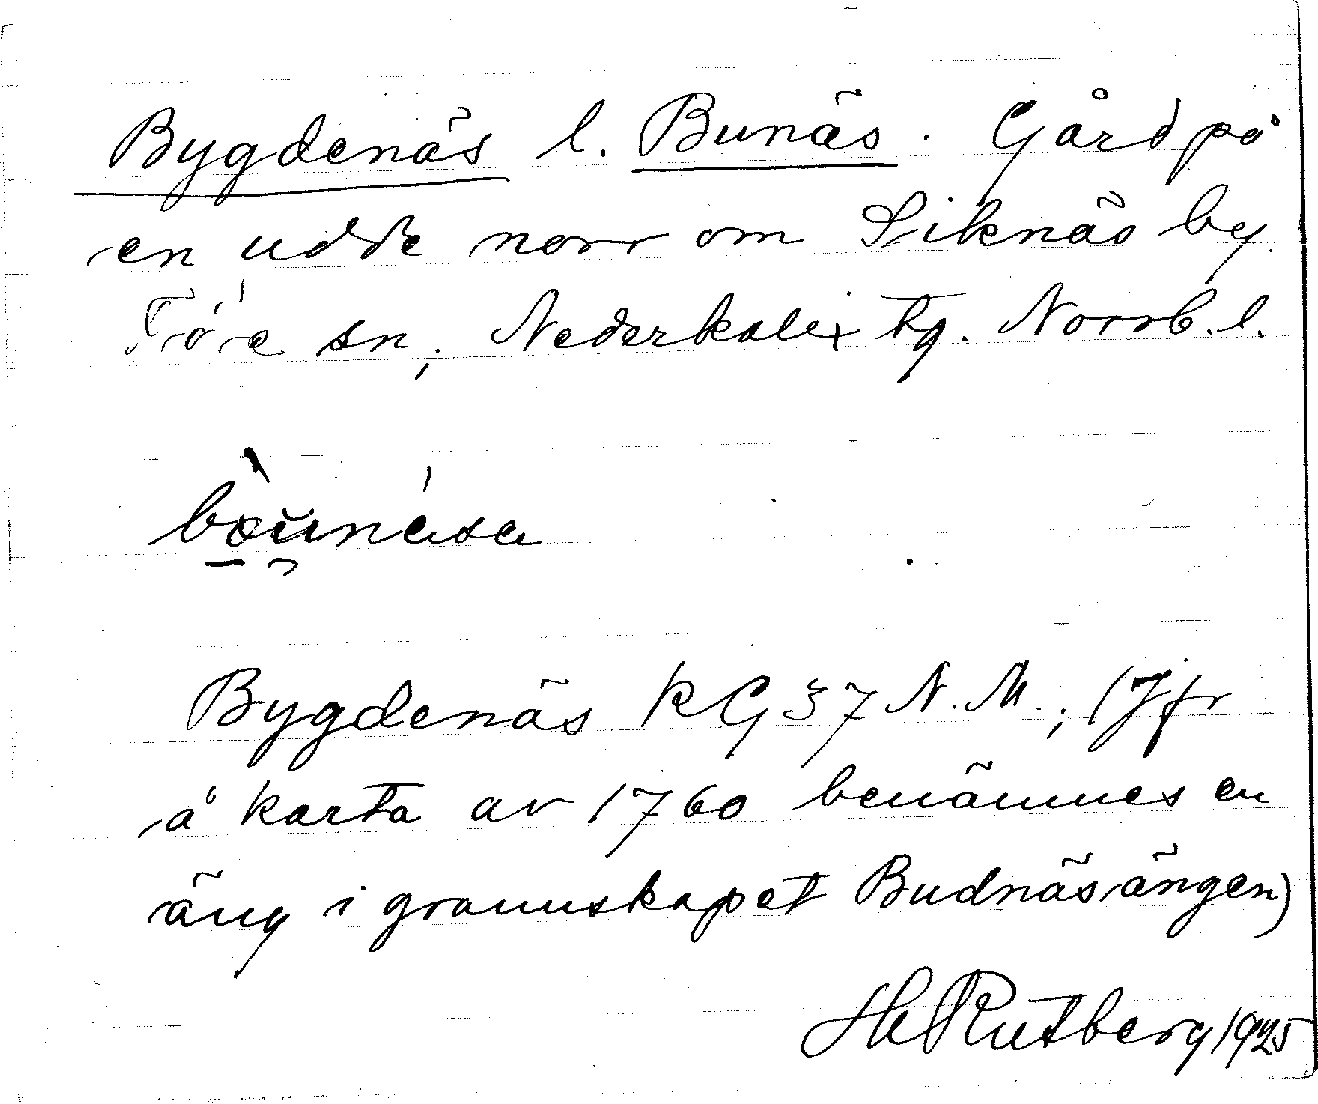 Bygdenäs l. Bunäs. Gård på
en udde norr om Siknäs by
Töre sn, Nederkalix tg. Norrb. l.
Bygdenäs KG 37 N. M.; (Jfr
å karta av 1760 benämnes en
äng i grannskapet Budnäsängen)
H Rutberg 1925